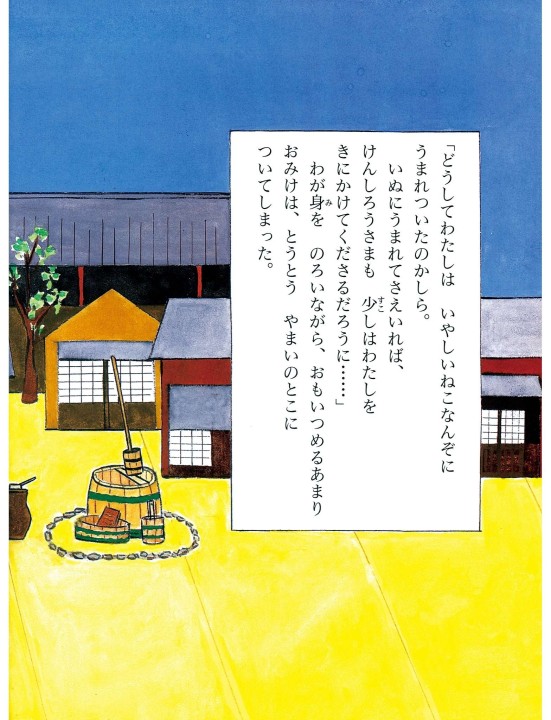 「どうしてわたしは　いやしいねこなんぞに
うまれついたのかしら。
　いぬにうまれてさえいれば、
けんしろうさまも　少しはわたしを
きにかけてくださるだろうに……」
　わが身を　のろいながら、おもいつめるあまり
おみけは、とうとう　やまいのとこに
ついてしまった。